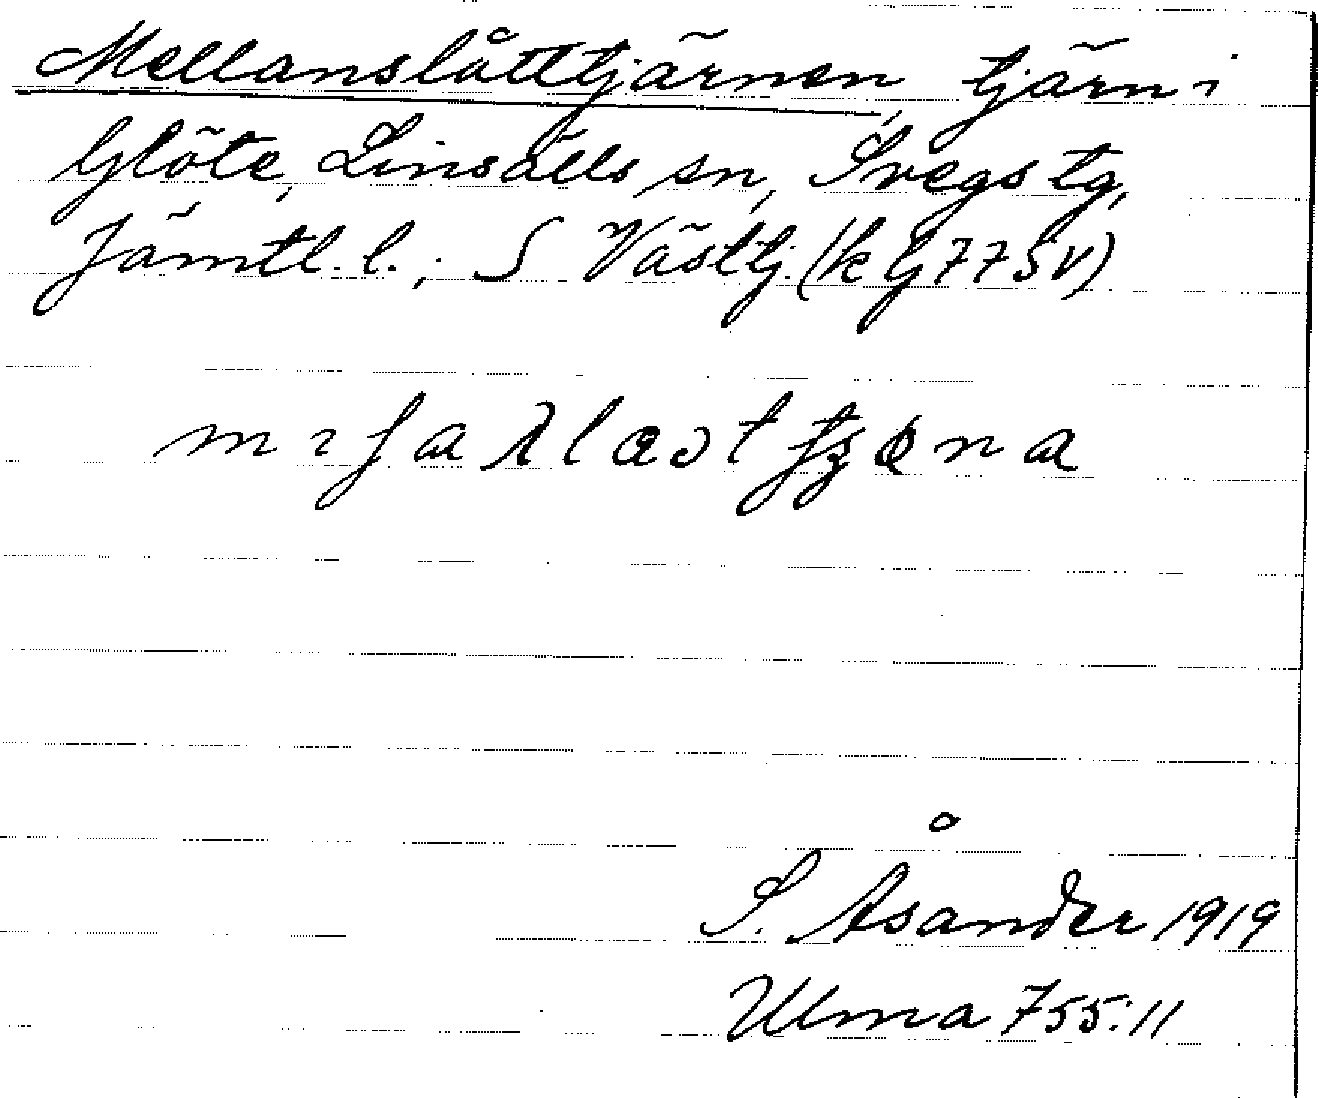 Mellanslåttjärnen, tjärn i
Glöte, Linsälls sn, Svegs tg,
Jämtl. l., S Västtj. (k G 77 SV)
S. Åsander 1919
Ulma 755:11